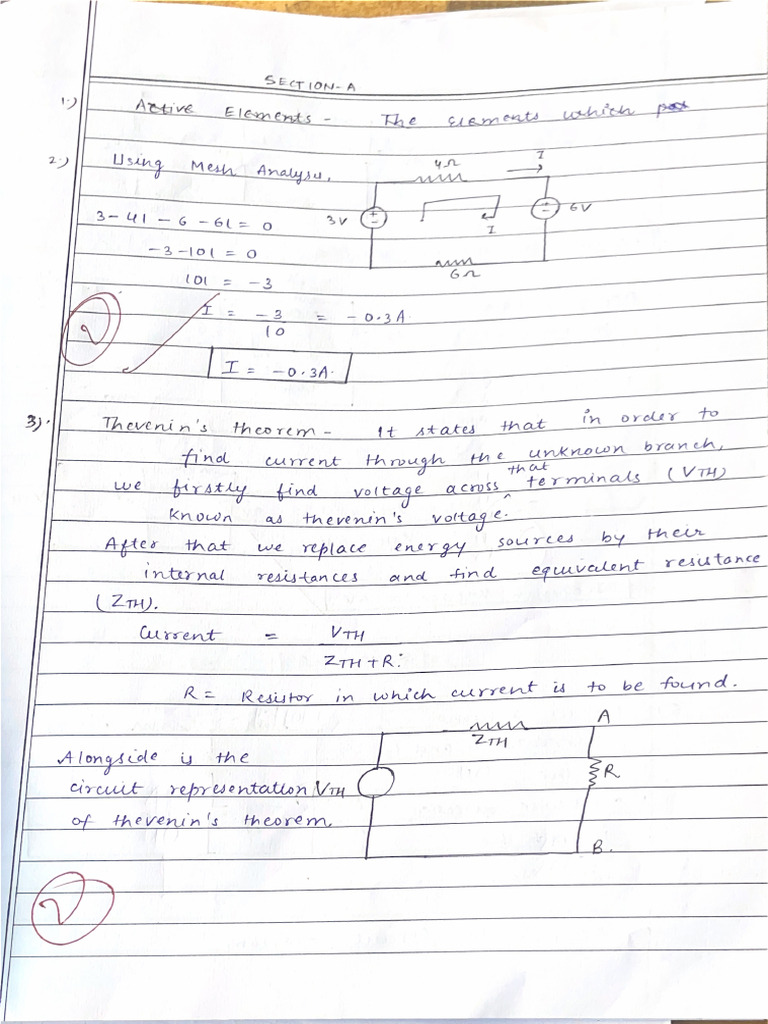 SECTION-A
1.) Active Elements - The elements which
2.) Using Mesh Analysis,
4Ω
I
3V
6V
I
6Ω
3 - 4I - 6 - 6I = 0
-3 - 10I = 0
10I = -3
I = -3/10 = -0.3A
I = -0.3A.
2
3). Thevenin's theorem - It states that in order to
find current through the unknown branch,
we firstly find voltage across that terminals (VTH)
known as thevenin's voltage.
After that we replace energy sources by their
internal resistances and find equivalent resistance
(ZTH).
Current = VTH
ZTH + R
R = Resistor in which current is to be found.
Alongside is the
circuit representation
of thevenin's theorem.
VTH
ZTH
A
R
B.
2